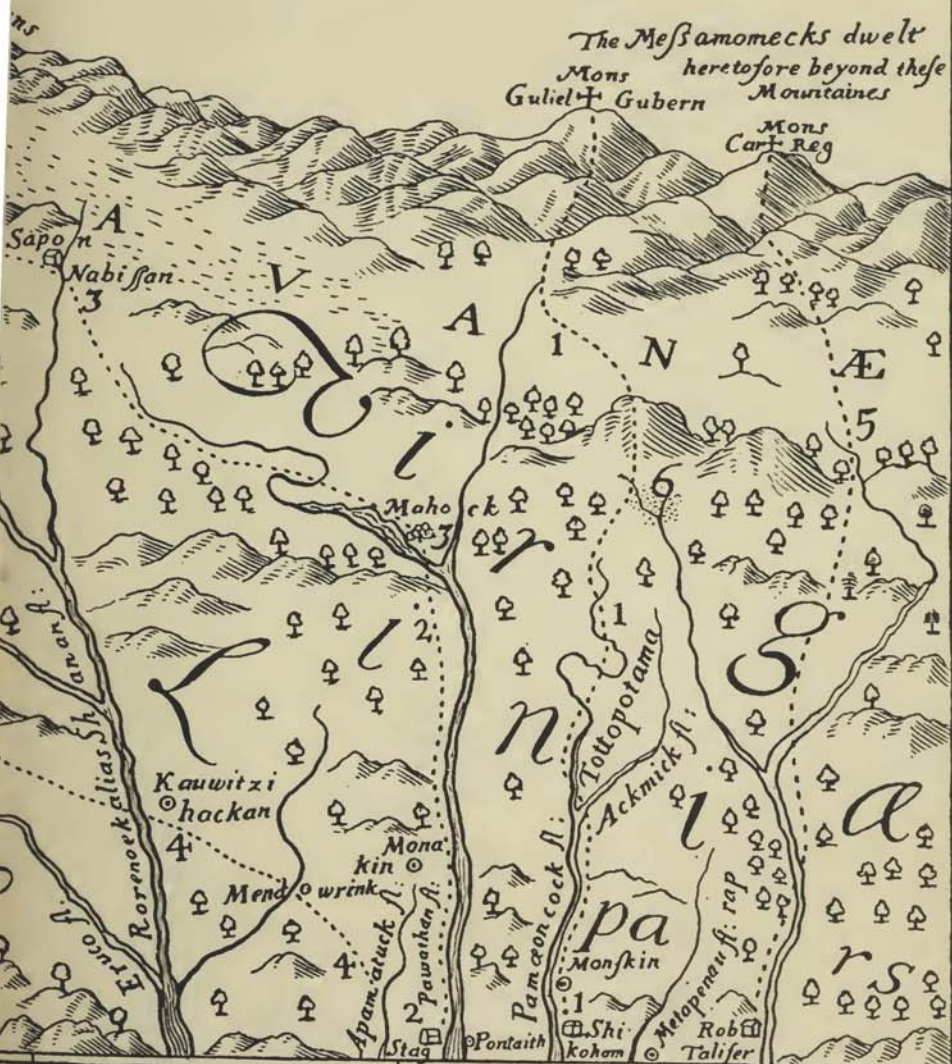 ns
The Meſsamomecks dwelt
heretofore beyond theſe
Mountaines
Mons
Guliel Gubern
Mons
Car Reg
A V A N Æ
Sapon
Nabiſſan
3
1
5
V i r g
6
Mahock
3
2
1
L l n i a
Shanan fl:
Rorenoek alias
Tottopotama
Ackmick fl:
Kauwitzi
hackan
4
Mona
kin
Mendowrink
Eruco fl.
4
Apamatuck fl:
Pawathan fl:
Pamæoncock fl:
pa
rs
Monſkin
Metapenau fl: rap
2
1
Stag
Pontaith
Shi
kohom
Rob
Talifer